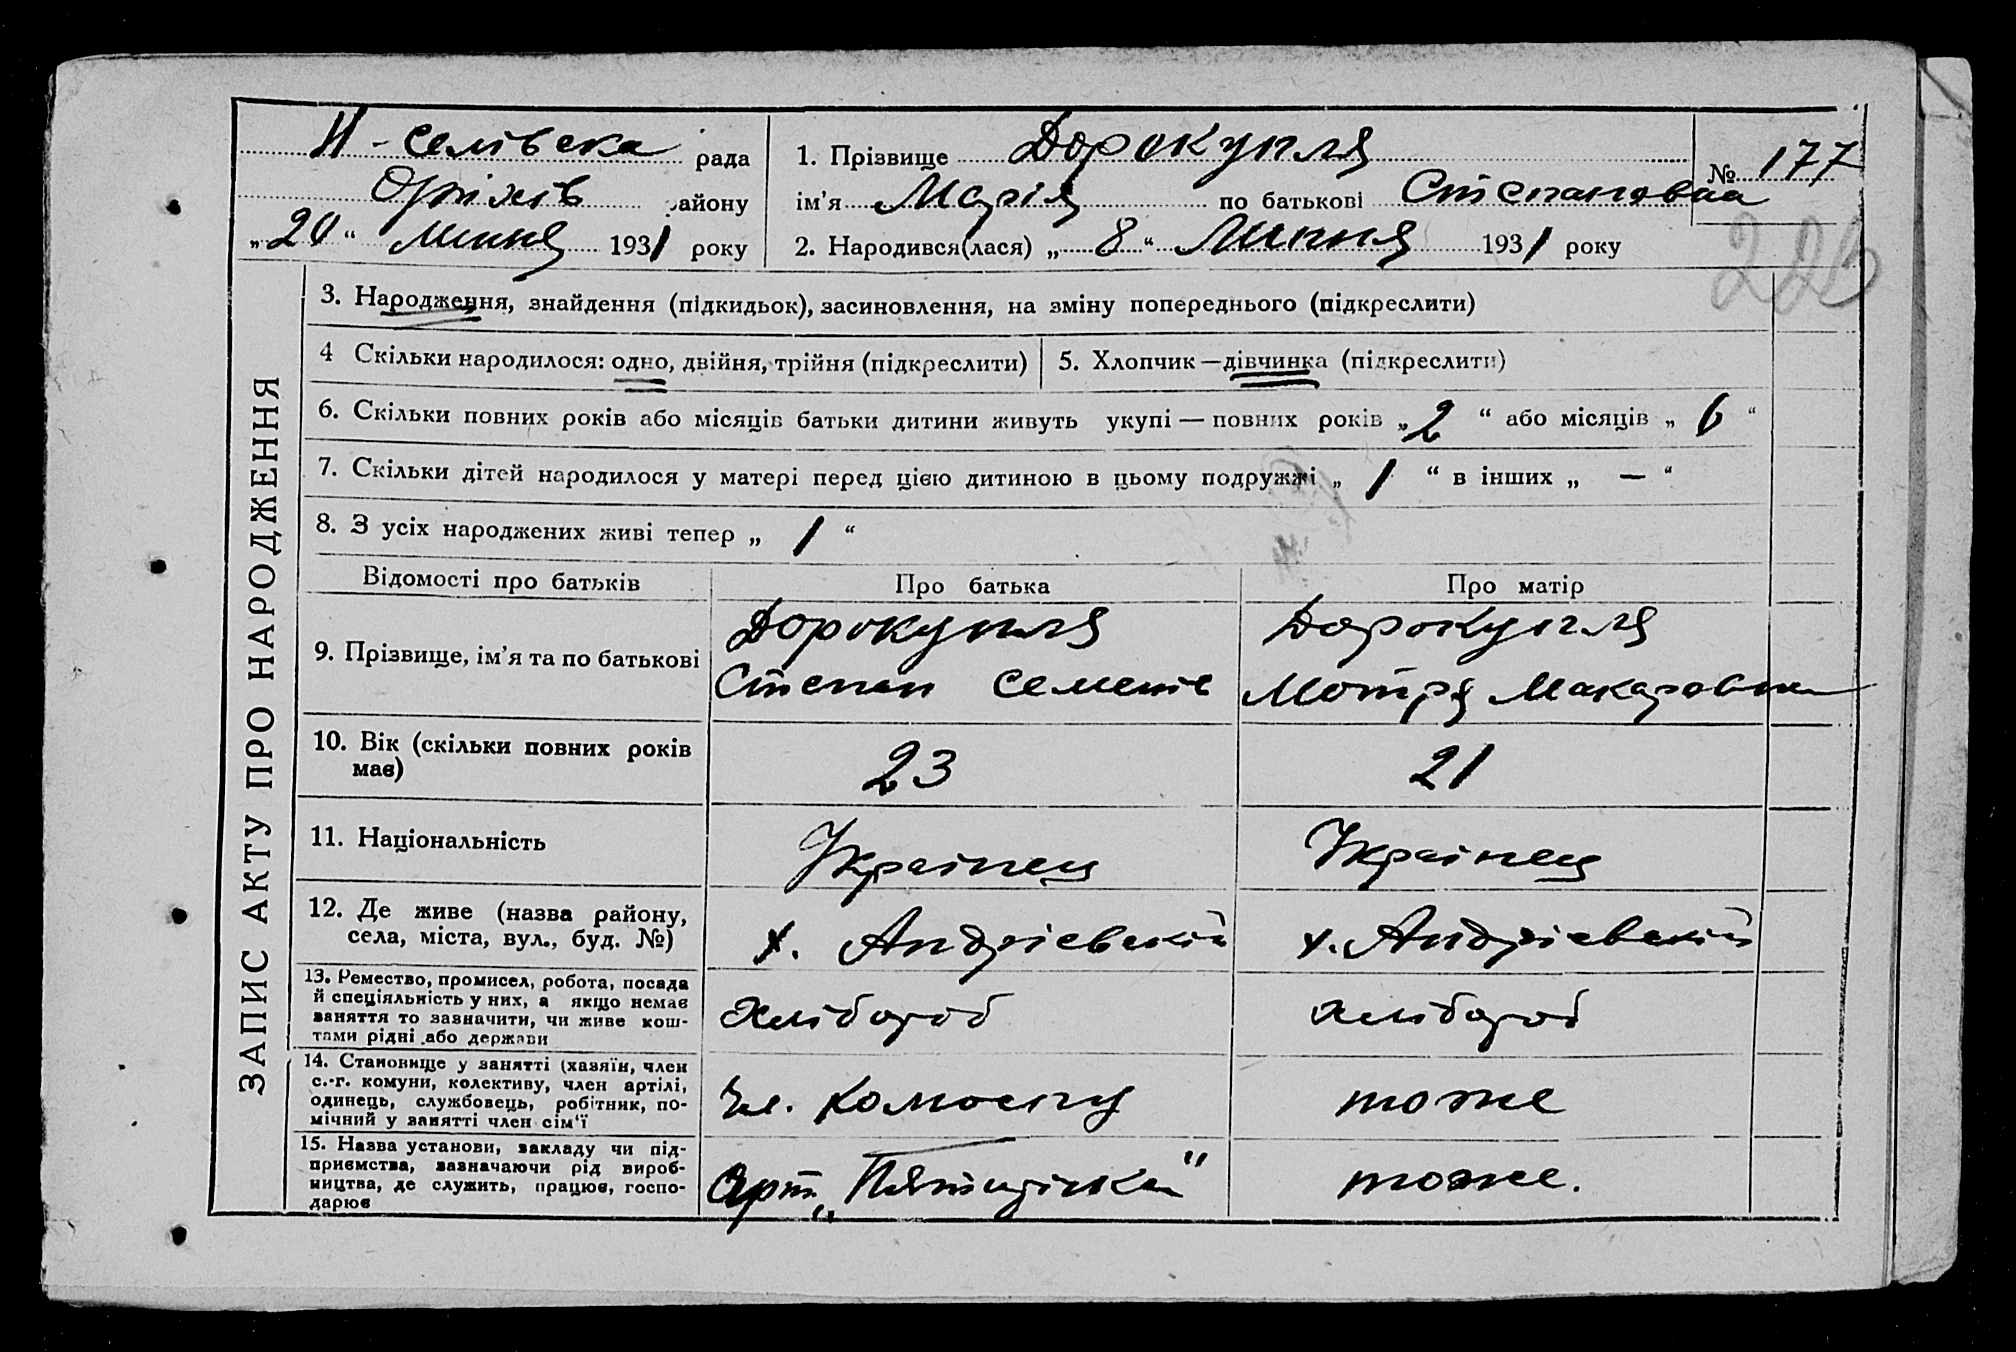 Н-селівська рада
Оріхів району
„20“ липня 1931 року
1. Прізвище Дорокупля
№ 177
ім’я Марія по батькові Степановна
2. Народився(лася) „8“ Липня 1931 року
226
ЗАПИС АКТУ ПРО НАРОДЖЕННЯ
3. Народження, знайдення (підкидьок), засиновлення, на зміну попереднього (підкреслити)
4 Скільки народилося: одно, двійня, трійня (підкреслити)
5. Хлопчик — дівчинка (підкреслити)
6. Скільки повних років або місяців батьки дитини живуть укупі — повних років „2“ або місяців „6“
7. Скільки дітей народилося у матері перед цією дитиною в цьому подружжі „1“ в інших „—“
8. З усіх народжених живі тепер „1“
Відомості про батьків
Про батька
Про матір
9. Прізвище, ім’я та по батькові
Дорокупля
Степан Семенів
Дорокупля
Мотря Макаровна
10. Вік (скільки повних років
має)
23
21
11. Національність
Українец
Українец
12. Де живе (назва району,
села, міста, вул., буд. №)
х. Андрієвскій
х. Андрієвскій
13. Ремество, промисел, робота, посада
й спеціяльність у них, а якщо немає
заняття то зазначити, чи живе кош-
тами рідні або держави
хлібороб
хлібороб
14. Становище у занятті (хазяїн, член
с.-г. комуни, колективу, член артілі,
одинець, службовець, робітник, по-
мічний у занятті член сім‘ї
Чл. Колхоспу
тоже
15. Назва установи, закладу чи під-
приємства, зазначаючи рід вироб-
ництва, де служить, працює, госпо-
дарює
Арт. „Пятирічка“
тоже.